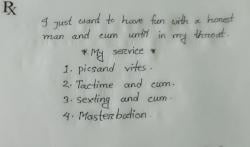 Rx
I just want to have fun with a honest
man and cum until in my throat.
* My service *
1. pics and vites.
2. Tactime and cum.
3. sexting and cum.
4. Masterbation.